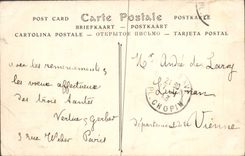 POST CARD Carte Postale POSTKARTE
BRIEFKAART - POSTKAART
CARTOLINA POSTALE - ОТКРЫТОЕ ПИСЬМО - TARJETA POSTAL
avec les remerciements &
les vœux affectueux
des trois tantes
3 rue Weber Paris
Mr André de
R. CHOPIN
Département de la Vienne